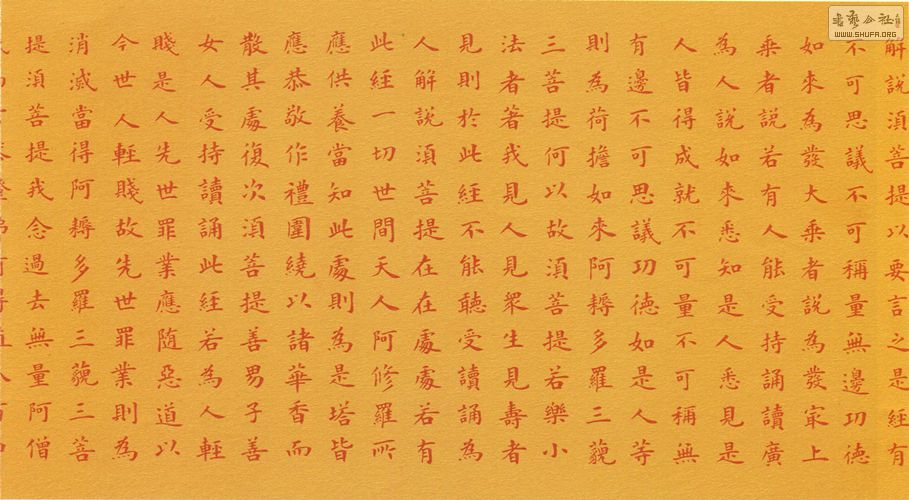 解說須菩提以要言之是經有
不可思議不可稱量無邊功德
如來為發大乘者說為發冣上
乘者說若有人能受持誦讀廣
為人說如來悉知是人悉見是
人皆得成就不可量不可稱無
有邊不可思議功德如是人等
則為荷擔如來阿耨多羅三藐
三菩提何以故須菩提若樂小
法者著我見人見眾生見壽者
見則於此經不能聽受讀誦為
人解說須菩提在在處處若有
此經一切世間天人阿修羅所
應供養當知此處則為是塔皆
應恭敬作禮圍繞以諸華香而
散其處復次須菩提善男子善
女人受持讀誦此經若為人輕
賤是人先世罪業應随惡道以
今世人輕賤故先世罪業則為
消滅當得阿耨多羅三藐三菩
提須菩提我念過去無量阿僧
書藝公社
WWW.SHUFA.ORG